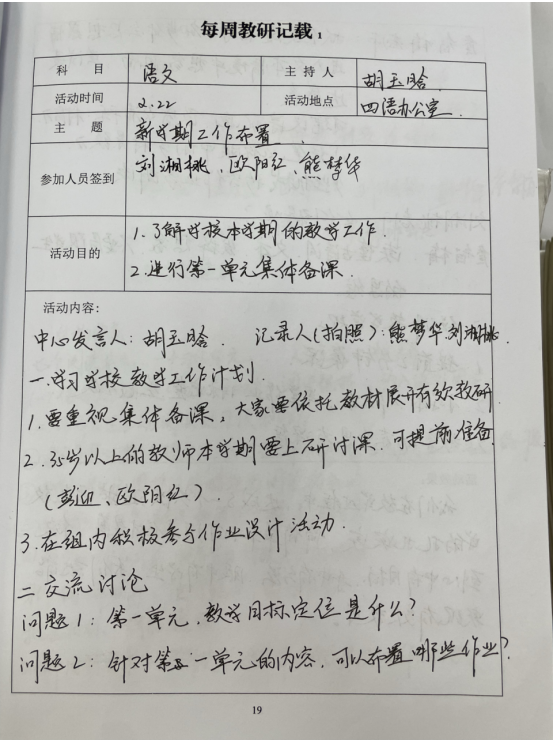 每周教研记载1
科 目 语文 主 持 人 胡玉晗
活动时间 2.22 活动地点 四语办公室
主 题 新学期工作布置
参加人员签到 刘湘桃、欧阳红、熊梦华
活动目的 1.了解学校本学期的教学工作.
2.进行第一单元集体备课.
活动内容:
中心发言人: 胡玉晗. 记录人(拍照):熊梦华.刘湘桃.
一.学习学校教学工作计划.
1.要重视集体备课, 大家要依托教材展开有效教研
2.35岁以上的教师本学期要上研讨课.可提前准备
(彭迎、欧阳红).
3.在组内积极参与作业设计活动.
二 交流讨论
问题1: 第一单元,教学目标定位是什么?
问题2: 针对第一单元的内容,可以布置哪些作业?
19